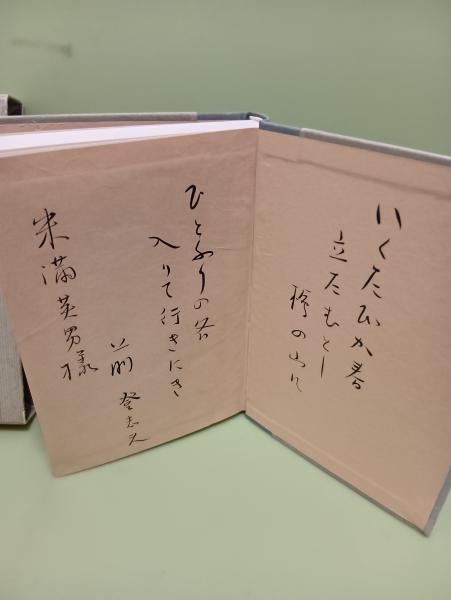 いくたびか春
立たむとし
の山に
ひとふりの斧
入りて行きにき
前 登志夫
米満英男様